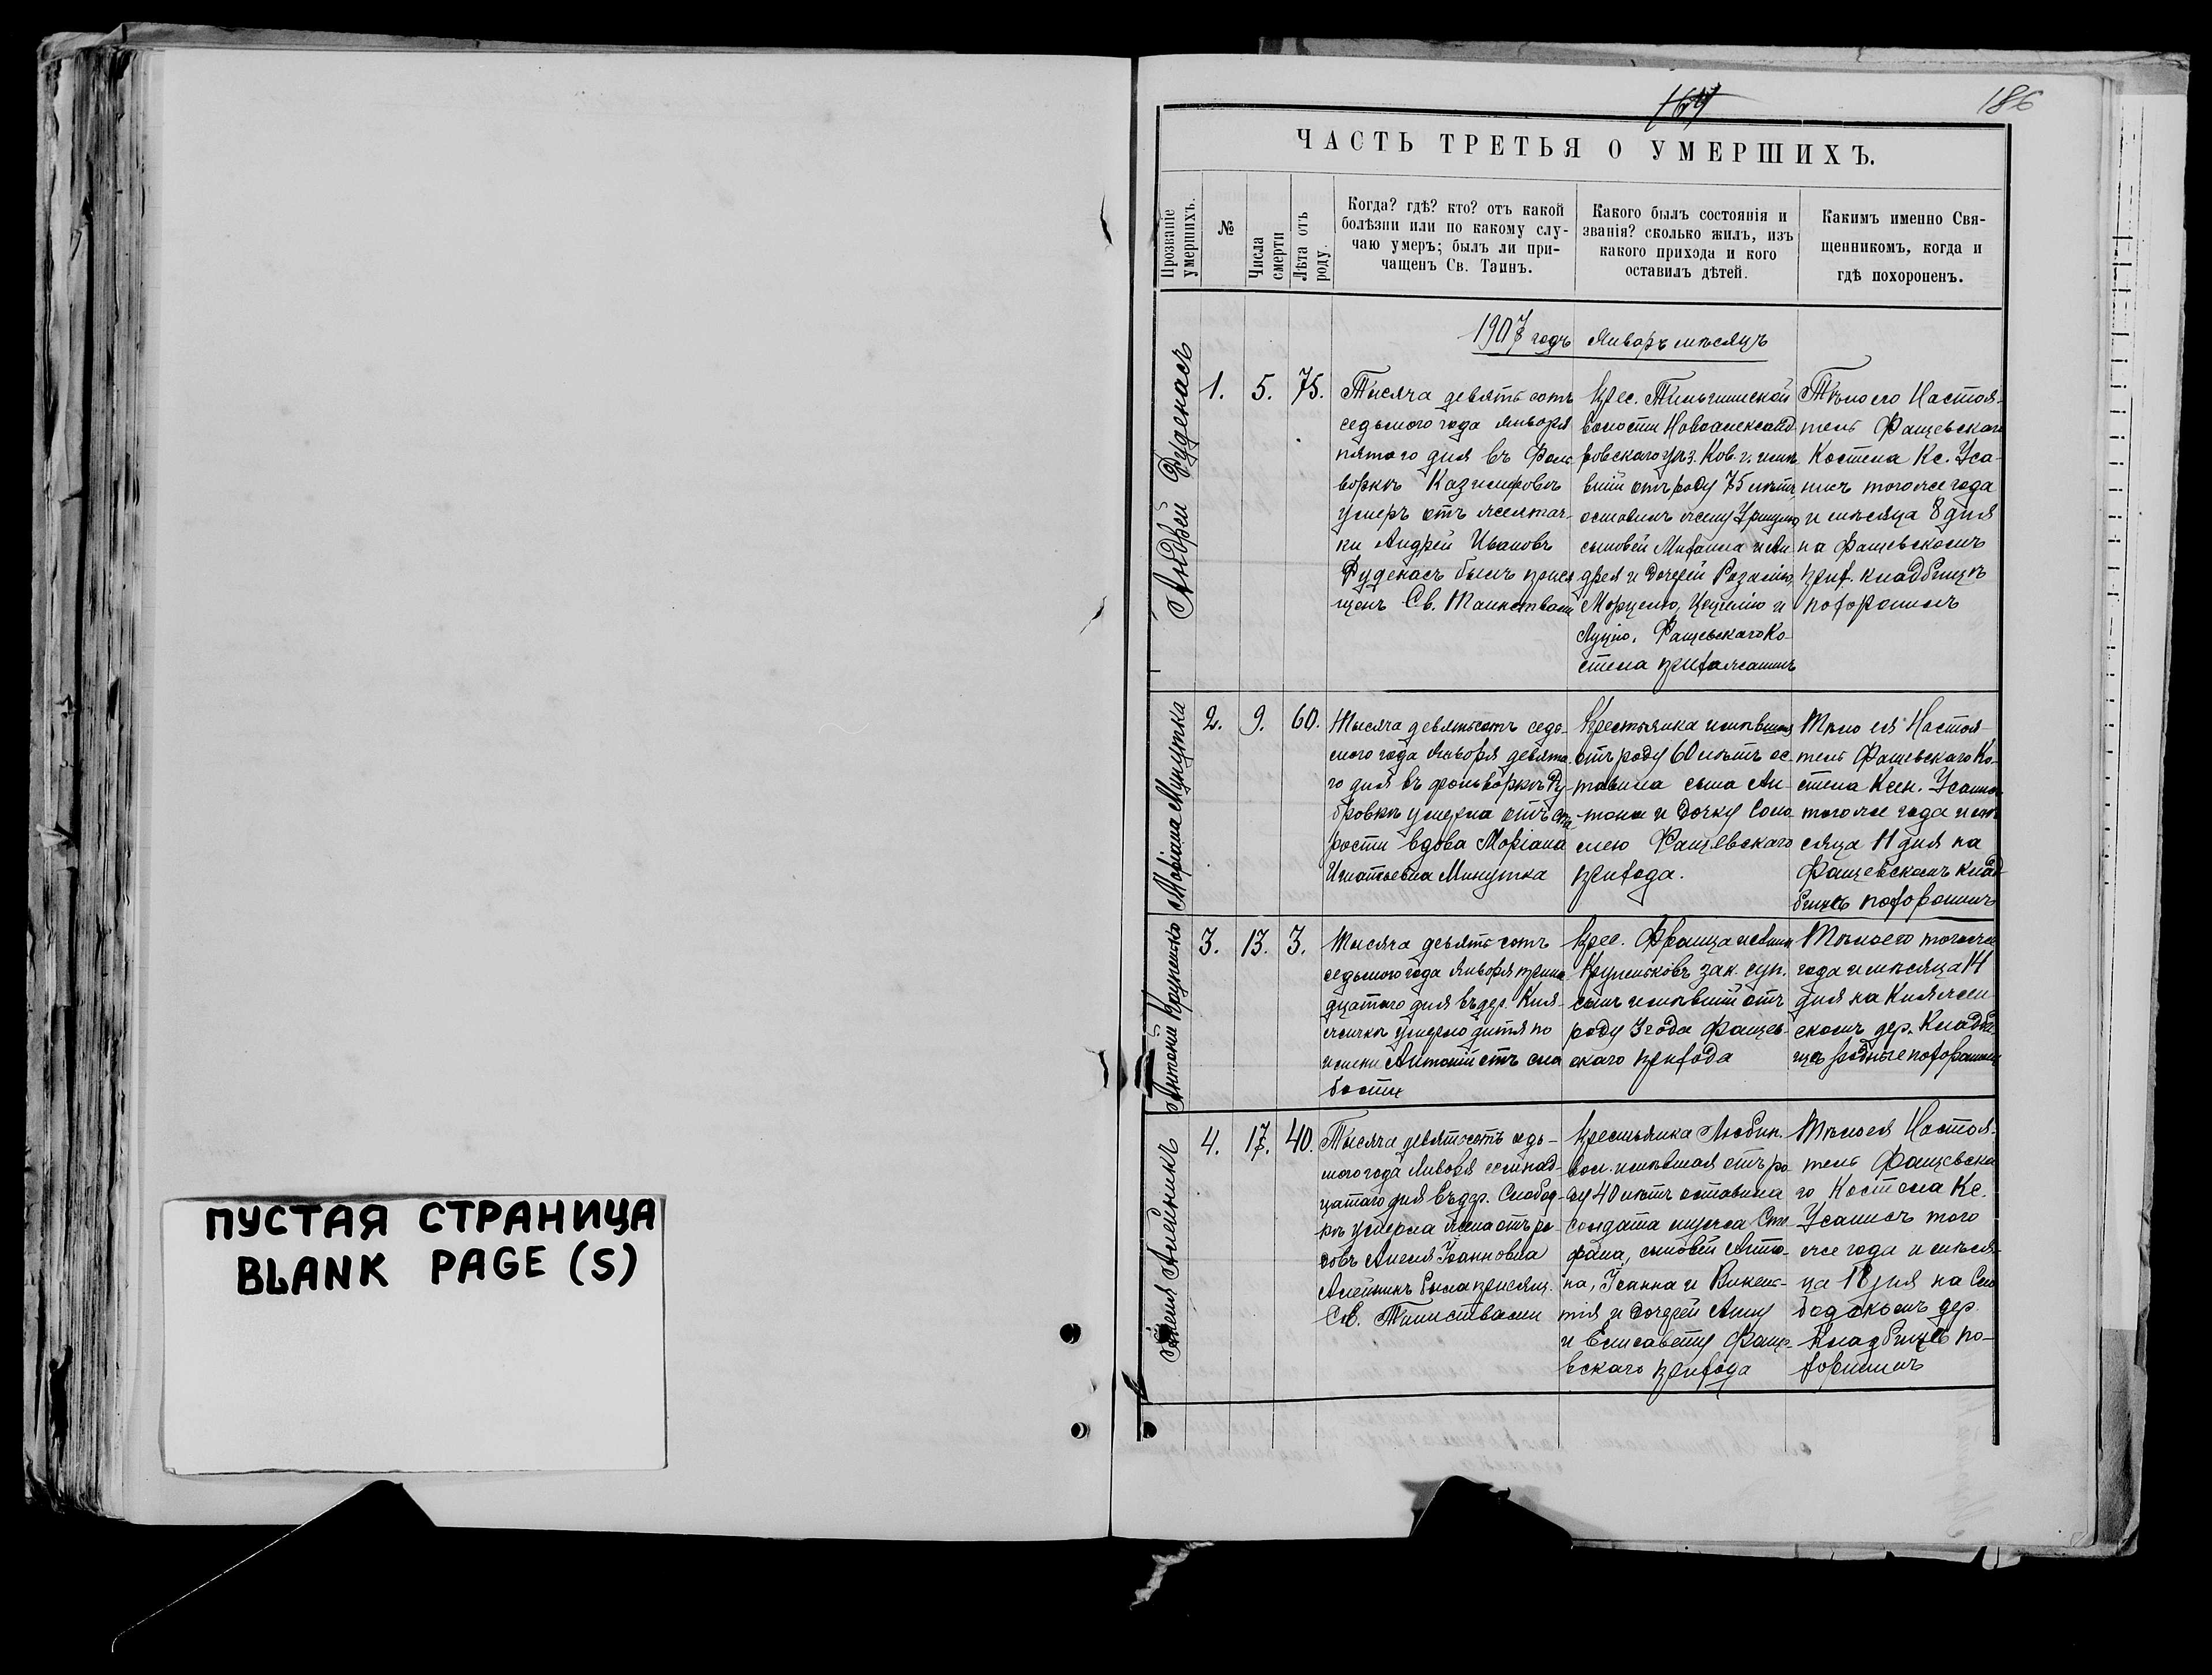 ПУСТАЯ СТРАНИЦА
BLANK PAGE (S)
186
ЧАСТЬ ТРЕТЬЯ О УМЕРШИХЪ.
Прозваніе умершихъ.
№
Числа смерти
Лѣта отъ роду.
Когда? гдѣ? кто? отъ какой
болѣзни или по какому слу-
чаю умеръ; былъ ли при-
чащенъ Св. Таинъ.
Какого былъ состоянія и
званія? сколько жилъ, изъ
какого прихода и кого
оставилъ дѣтей.
Какимъ именно Свя-
щенникомъ, когда и
гдѣ похороненъ.
1907 годъ Январь мѣсяцъ
Андрей Руденасъ
1.
5.
75.
Тысяча девятьсотъ
седьмого года января
пятого дня въ Фоль
воркѣ Казимировѣ
умеръ отъ желтач-
ки Андрей Ивановъ
Руденасъ былъ
щенъ Св. Таинствами
Крес.
волости Новоалександ
ровскаго уѣз. Ков. г. имѣ
вшій отъ роду 75 лѣтъ
оставилъ жену
сыновей Михаила и Ан
дрея и дочерей Розалію
Марцелю, Цецилію и
Луцію, Фащевскаго Ко
стела прихожанинъ
Тѣло его Настоя-
тель Фащевскаго
Костела Кс. Уса-
нисъ того же года
и мѣсяца 8 дня
на Фащевскомъ
прих. кладбищѣ
похоронилъ
Маріана Минутка
2.
9.
60.
Тысяча девятьсотъ седь-
мого года Января девята
го дня въ фольваркѣ Ду-
бровкѣ умерла отъ ста
рости вдова Маріана
Игнатьевна Минутка
Крестьянка имѣвшая
отъ роду 60 лѣтъ ос-
тавила сына Ан-
тона и дочку Сало-
мею Фащевскаго
прихода.
Тѣло ея Настоя-
тель Фащевскаго Ко-
стела Ксен. Усанисъ
того же года и мѣ
сяца 11 дня на
Фащевскомъ клад
бищѣ похоронилъ
Антоній Крупенько
3.
13.
3.
Тысяча девятьсотъ
седьмого года Января трина
дцатого дня въ дер. Кня-
жичкѣ умерло дитя по
имени Антоній отъ сла
бости
Крес. Франца и Анны
Крупеньковъ зак. суп.
сынъ имѣвшій отъ
роду 3 года Фащев-
скаго прихода
Тѣло его того же
года и мѣсяца 14
дня на Княжиц
скомъ дер. Кладби
щѣ родные похоронили
Анеля Алейникъ
4.
17.
40.
Тысяча девятьсотъ седь-
мого года Января семнад-
цатаго дня въ дер. Слобод-
кѣ умерла жена отъ ро-
довъ Анеля Іоанновна
Алейникъ была причащ.
Св. Таинствами
Крестьянка Любин.
вол. имѣвшая отъ ро-
ду 40 лѣтъ оставила
солдата мужа Сте
фана, сыновей Анто-
на, Іоанна и Викен-
тія и дочерей Анну
и Елисавету Фаще-
вскаго прихода
Тѣло ея Настоя-
тель Фащевска
го Костела Кс.
Усанисъ того
же года и мѣся-
ца 18 дня на Сло
бодскомъ дер.
Кладбищѣ по-
хоронилъ